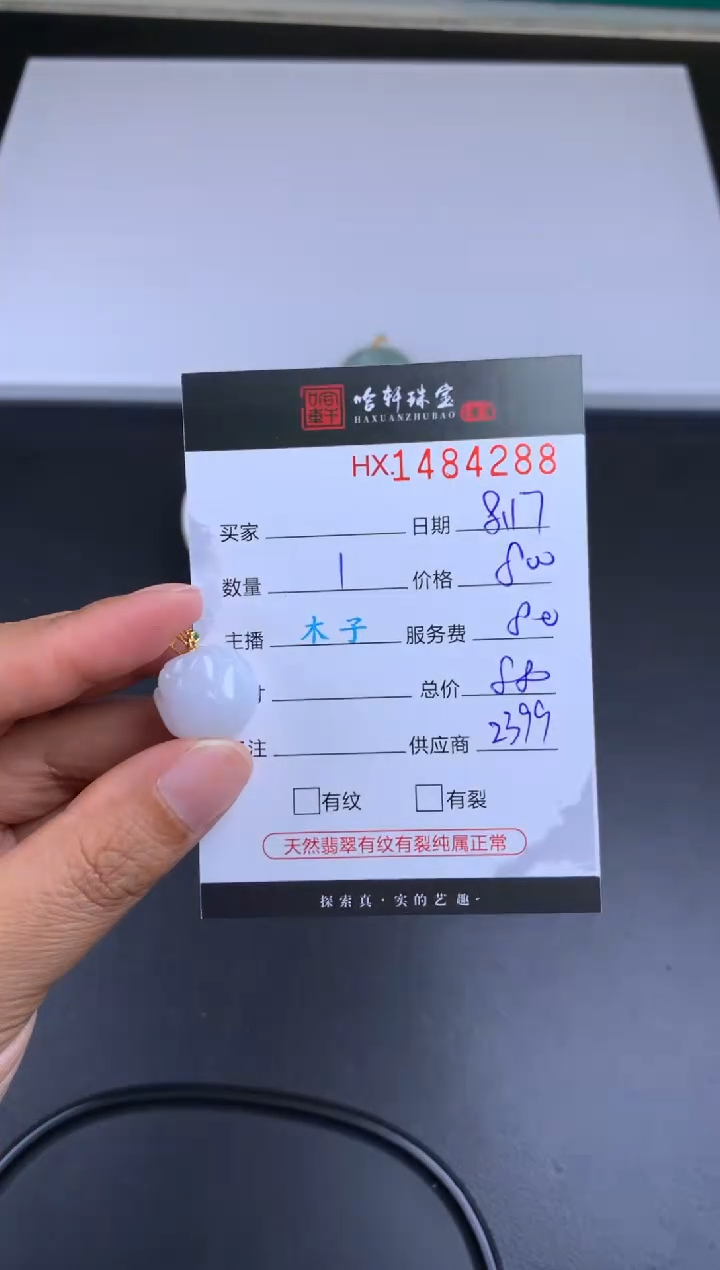 哈轩珠宝
HAXUANZHUBAO
HX.1484288
买家 日期 8.17
数量 1 价格 800
主播 木子 服务费 80
寸 总价 880
注 供应商 2399
有纹 有裂
天然翡翠有纹有裂纯属正常
探索真·实的艺趣